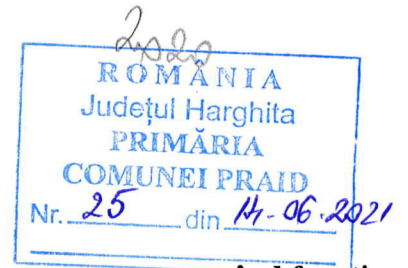 2020
ROMÂNIA
Județul Harghita
PRIMĂRIA
COMUNEI PRAID
Nr. 25 din 14-06-2021